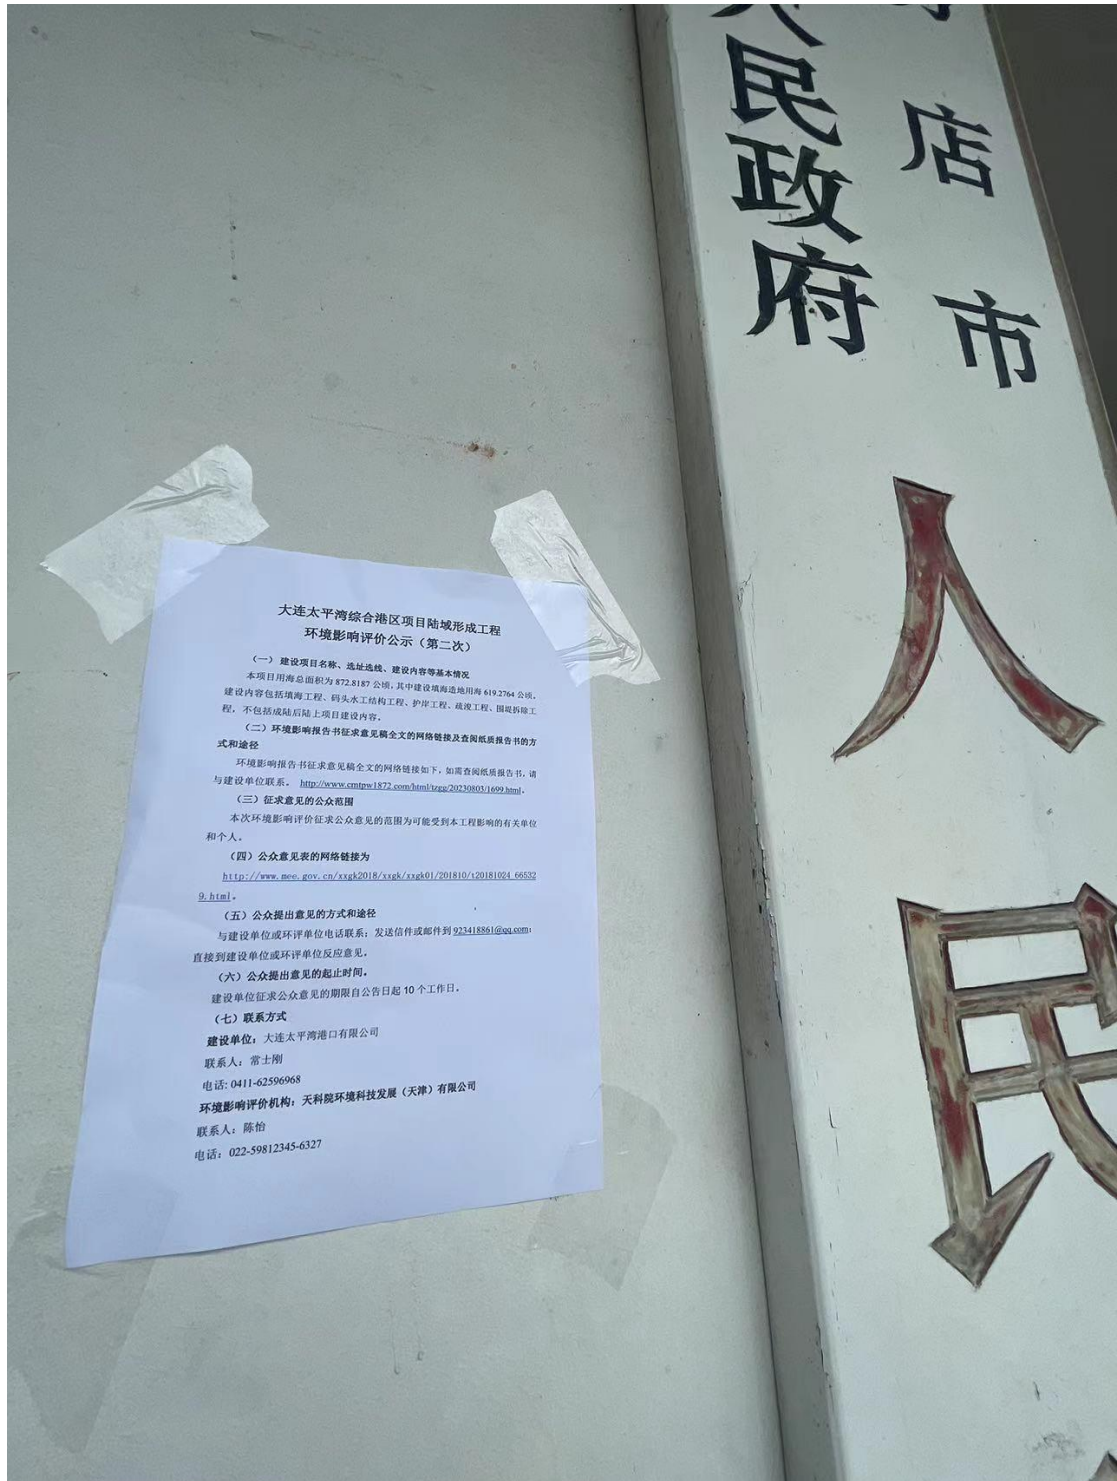 大连太平湾综合港区项目陆域形成工程
环境影响评价公示（第二次）
（一） 建设项目名称、选址选线、建设内容等基本情况
本项目用海总面积为 872.8187 公顷，其中建设填海造地用海 619.2764 公顷。
建设内容包括填海工程、码头水工结构工程、护岸工程、疏浚工程、围堤拆除工
程，不包括成陆后陆上项目建设内容。
（二）环境影响报告书征求意见稿全文的网络链接及查阅纸质报告书的方
式和途径
环境影响报告书征求意见稿全文的网络链接如下，如需查阅纸质报告书，请
与建设单位联系。 http://www.cmtpw1872.com/html/tzgg/20230803/1699.html。
（三）征求意见的公众范围
本次环境影响评价征求公众意见的范围为可能受到本工程影响的有关单位
和个人。
（四）公众意见表的网络链接为
http://www.mee.gov.cn/xxgk2018/xxgk/xxgk01/201810/t20181024_66532
9.html。
（五）公众提出意见的方式和途径
与建设单位或环评单位电话联系；发送信件或邮件到 923418861@qq.com；
直接到建设单位或环评单位反应意见。
（六）公众提出意见的起止时间。
建设单位征求公众意见的期限自公告日起 10 个工作日。
（七）联系方式
建设单位：大连太平湾港口有限公司
联系人：常士刚
电话: 0411-62596968
环境影响评价机构：天科院环境科技发展（天津）有限公司
联系人：陈怡
电话：022-59812345-6327
人民政府
店市人民